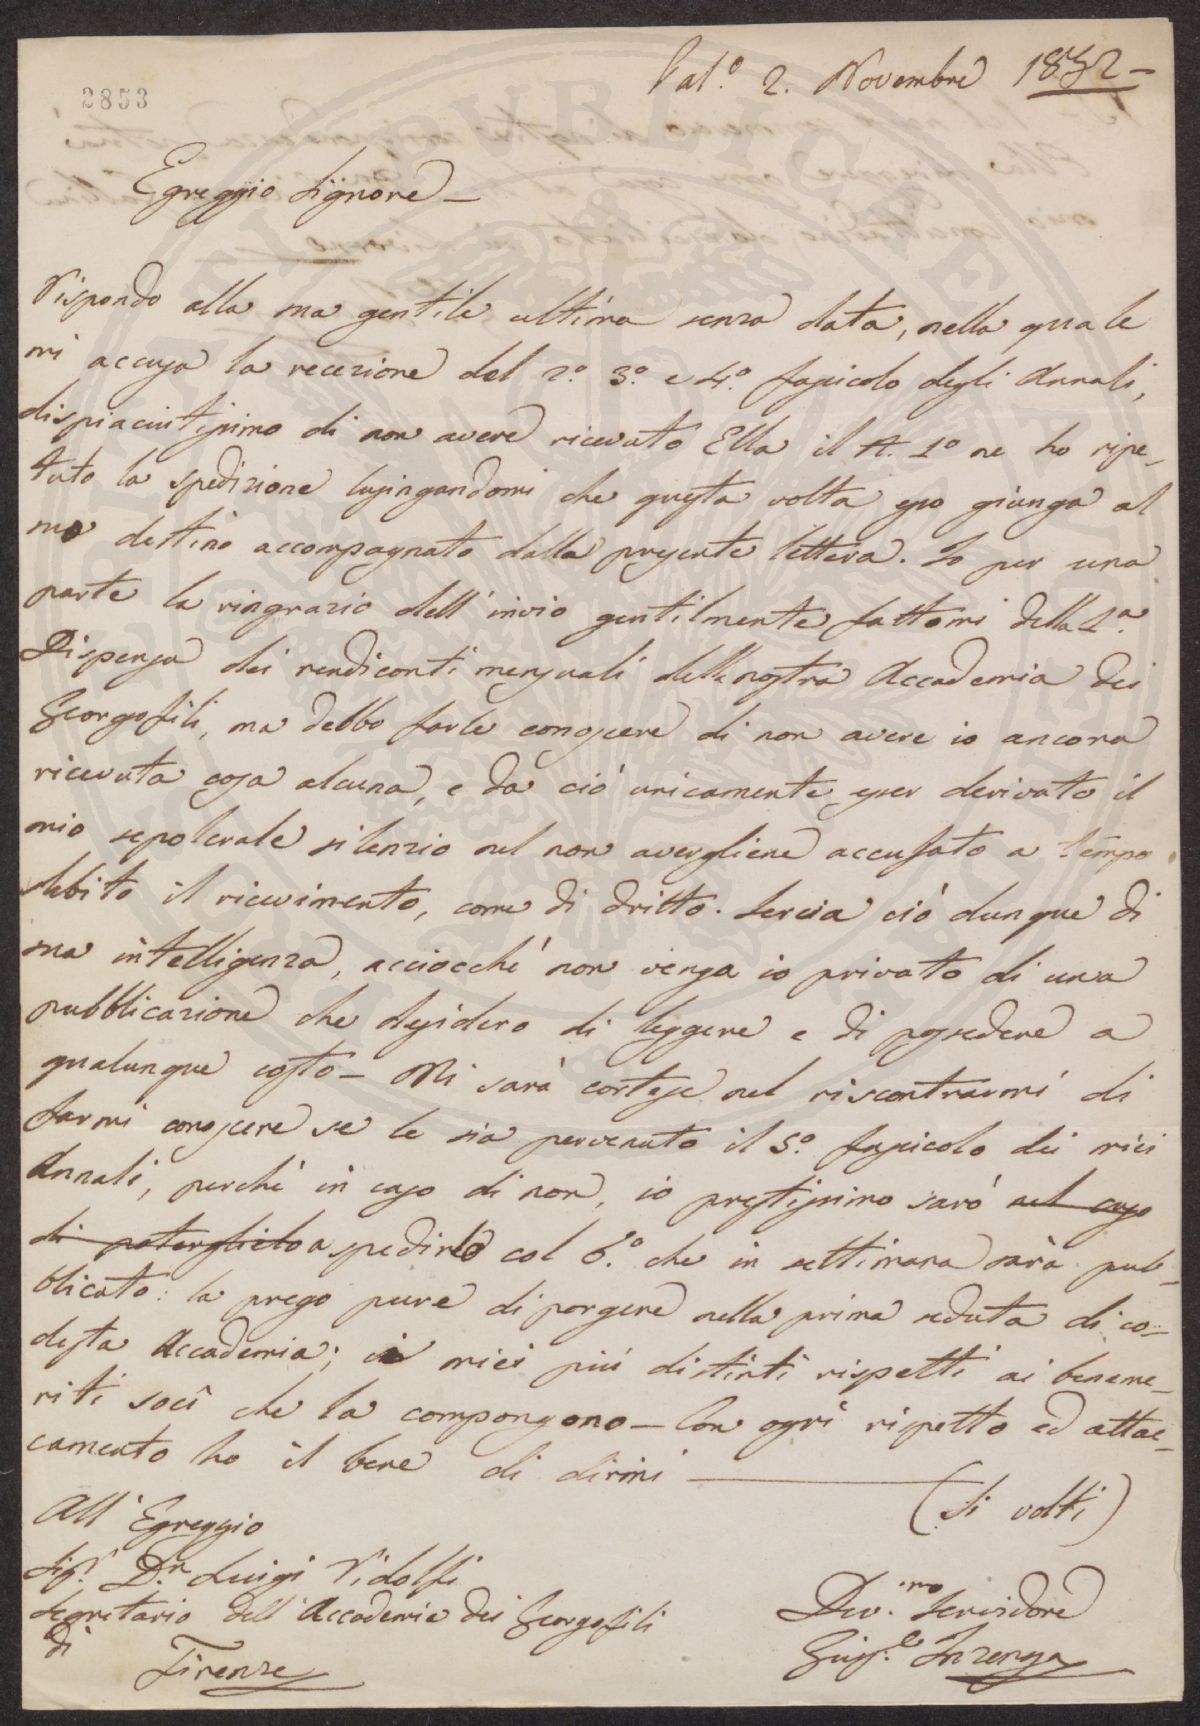 2853
Pal.º 2. Novembre 1852 –
Egreggio Signore –
Rispondo alla sua gentile ultima senza data, nella quale
mi accusa la recezione del 2.º 3.º e 4.º fascicolo degli Annali,
dispiacentissimo di non avere ricevuto Ella il N. 1º ne ho ripe-
tuto la spedizione lusingandomi che questa volta esso giunga al
suo destino accompagnato dalla presente lettera. Io per una
parte la ringrazio dell'invio gentilmente fattomi della 1.ª
Dispensa dei rendiconti mensuali della nostra Accademia dei
Georgofili, ma debbo farle conoscere di non avere io ancora
ricevuta cosa alcuna, e da ció unicamente esser derivato il
mio sepolcrale silenzio nel non avergliene accusato a tempo
debito il ricevimento, come di dritto. Serva ció dunque di
sua intelligenza, acciocché non venga io privato di una
pubblicazione che desidero di leggere e di possedere a
qualunque costo – Mi sará cortese nel riscontrarmi di
farmi conoscere se le sia pervenuto il 5.º fascicolo dei miei
Annali, perché in caso di non, io prestissimo saró nel caso
di a spedirlo col 6.º che in settimana sará pub-
blicato: la prego pure di porgere nella prima seduta di co-
desta Accademia; i miei piú distinti rispetti ai beneme-
riti socî che la compongono – Con ogni rispetto ed attac-
camento ho il bene di dirmi
(Si volti)
All'Egreggio
Sig.r D.r Luigi Ridolfi
Segretario dell'Accademia dei Georgofili
di
Firenze
Dev.mo Servidore
Gius.e Inzenga